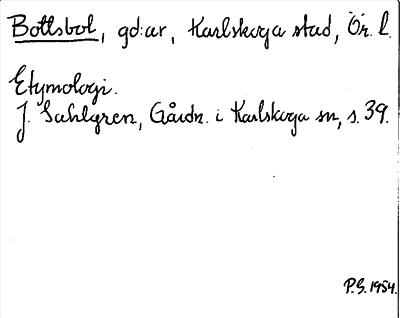 Bottsbol, gd:ar, Karlskoga stad, Ör. l.
Etymologi.
J. Sahlgren, Gårdn. i Karlskoga sn, s. 39.
P.G. 1954.